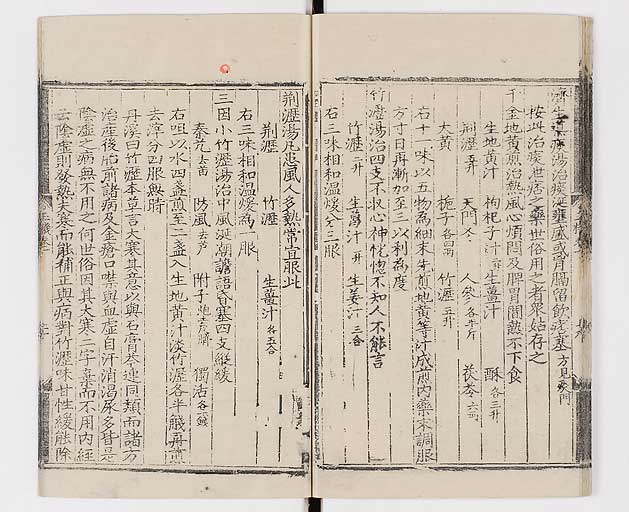 濟生導痰湯治痰涎壅盛或胷膈留飲痞塞方見痰門
按此治痰世痞之藥世俗用之者衆姑存之
千金地黄煎治熱風心煩悶及脾胃間熱不下食
生地黄汁 枸杞子汁 生薑汁 酥各三升
荆瀝五升 天門冬 人參各半斤 茯苓六兩
大黄 梔子各四兩 竹瀝五升
右十一味以五物為細末先煎地黄等汁成煎内藥末調服
方寸日再漸加至三以利為度
竹瀝湯治四支不收心神恍惚不知人不能言
竹瀝二升 生葛汁一升 生姜汁三合
右三味相和温煖分三服
荆瀝湯凡患風人多熱常宜服此
荆瀝 竹瀝 生薑汁各五合
右三味相和温煖為一服
三因小竹瀝湯治中風涎潮譫語昏塞四支縱緩
秦艽去苗 防風去芦 附子炮去臍 獨活各一錢
右咀以水四盞煎至二盞入生地黄汁淡竹瀝各半觥再煎
去滓分四服無時
丹溪曰竹瀝本草言大寒其意以與石膏芩連同類而諸方
治產後胎前諸病及金瘡口噤與血虚自汗消渴尿多皆是
陰虚之病無不用之何世俗因其大寒二字棄而不用内經
云陰虚則發熱大寒而能補正與病對竹瀝味甘性緩能除